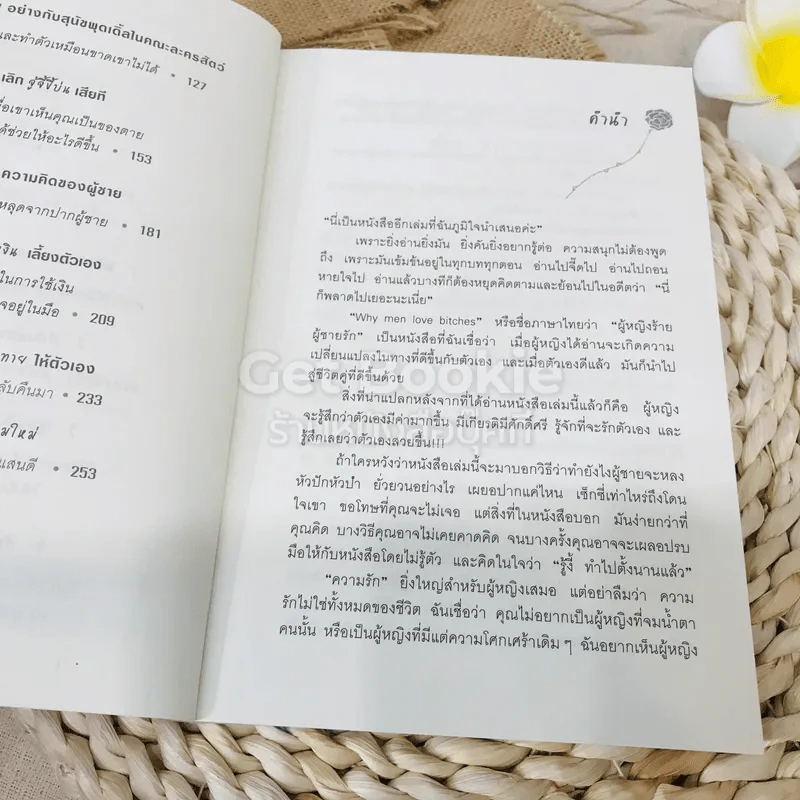 อย่างกับสุนัขพุดเดิ้ลในคณะละครสัตว์
และทำตัวเหมือนขาดเขาไม่ได้ • 127
เลิก จู้จี้ขี้บ่น เสียที
เขาเห็นคุณเป็นของตาย
ช่วยให้อะไรดีขึ้น • 153
ความคิดของผู้ชาย
หลุดจากปากผู้ชาย • 181
เลี้ยงตัวเอง
ในการใช้เงิน
อยู่ในมือ • 209
ทาย ให้ตัวเอง
ลับคืนมา • 233
มใหม่
แสนดี • 253
คำนำ
"นี่เป็นหนังสืออีกเล่มที่ฉันภูมิใจนำเสนอค่ะ"
เพราะยิ่งอ่านยิ่งมัน ยิ่งคันยิ่งอยากรู้ต่อ ความสนุกไม่ต้องพูด
ถึง เพราะมันเข้มข้นอยู่ในทุกบททุกตอน อ่านไปจี๊ดไป อ่านไปถอน
หายใจไป อ่านแล้วบางทีก็ต้องหยุดคิดตามและย้อนไปในอดีตว่า "นี่
ก็พลาดไปเยอะนะเนี่ย"
"Why men love bitches" หรือชื่อภาษาไทยว่า "ผู้หญิงร้าย
ผู้ชายรัก" เป็นหนังสือที่ฉันเชื่อว่า เมื่อผู้หญิงได้อ่านจะเกิดความ
เปลี่ยนแปลงในทางที่ดีขึ้นกับตัวเอง และเมื่อตัวเองดีแล้ว มันก็นำไป
สู่ชีวิตคู่ที่ดีขึ้นด้วย
Get Bookie
สิ่งที่น่าแปลกหลังจากที่ได้อ่านหนังสือเล่มนี้แล้วก็คือ ผู้หญิง
จะรู้สึกว่าตัวเองมีค่ามากขึ้น มีเกียรติมีศักดิ์ศรี รู้จักที่จะรักตัวเอง และ
ร้านหนังสือบุ๊คกี้
รู้สึกเลยว่าตัวเองสวยขึ้น!!!
ถ้าใครหวังว่าหนังสือเล่มนี้จะมาบอกวิธีว่าทำยังไงผู้ชายจะหลง
หัวปักหัวปำ ยั่วยวนอย่างไร เผยอปากแค่ไหน เซ็กซี่เท่าไหร่ถึงโดน
ใจเขา ขอโทษที่คุณจะไม่เจอ แต่สิ่งที่ในหนังสือบอก มันง่ายกว่าที่
คุณคิด บางวิธีคุณอาจไม่เคยคาดคิด จนบางครั้งคุณอาจจะเผลอปรบ
มือให้กับหนังสือโดยไม่รู้ตัว และคิดในใจว่า "รู้งี้ ทำไปตั้งนานแล้ว"
"ความรัก" ยิ่งใหญ่สำหรับผู้หญิงเสมอ แต่อย่าลืมว่า ความ
รักไม่ใช่ทั้งหมดของชีวิต ฉันเชื่อว่า คุณไม่อยากเป็นผู้หญิงที่จมน้ำตา
คนนั้น หรือเป็นผู้หญิงที่มีแต่ความโศกเศร้าเดิม ๆ ฉันอยากเห็นผู้หญิง